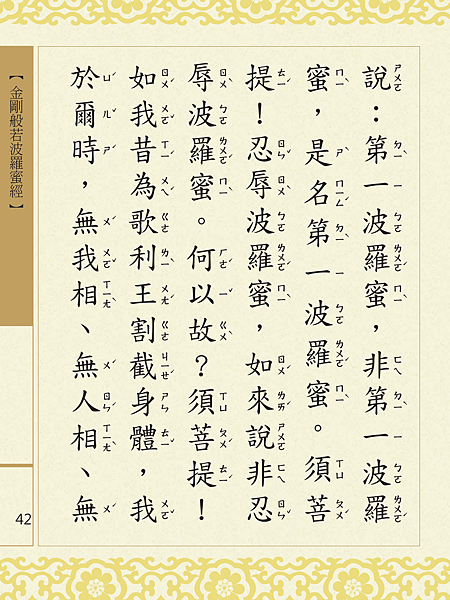 說：第一波羅蜜，非第一波羅
蜜，是名第一波羅蜜。須菩
提！忍辱波羅蜜，如來說非忍
辱波羅蜜。何以故？須菩提！
如我昔為歌利王割截身體，我
於爾時，無我相、無人相、無
【金剛般若波羅蜜經】
42